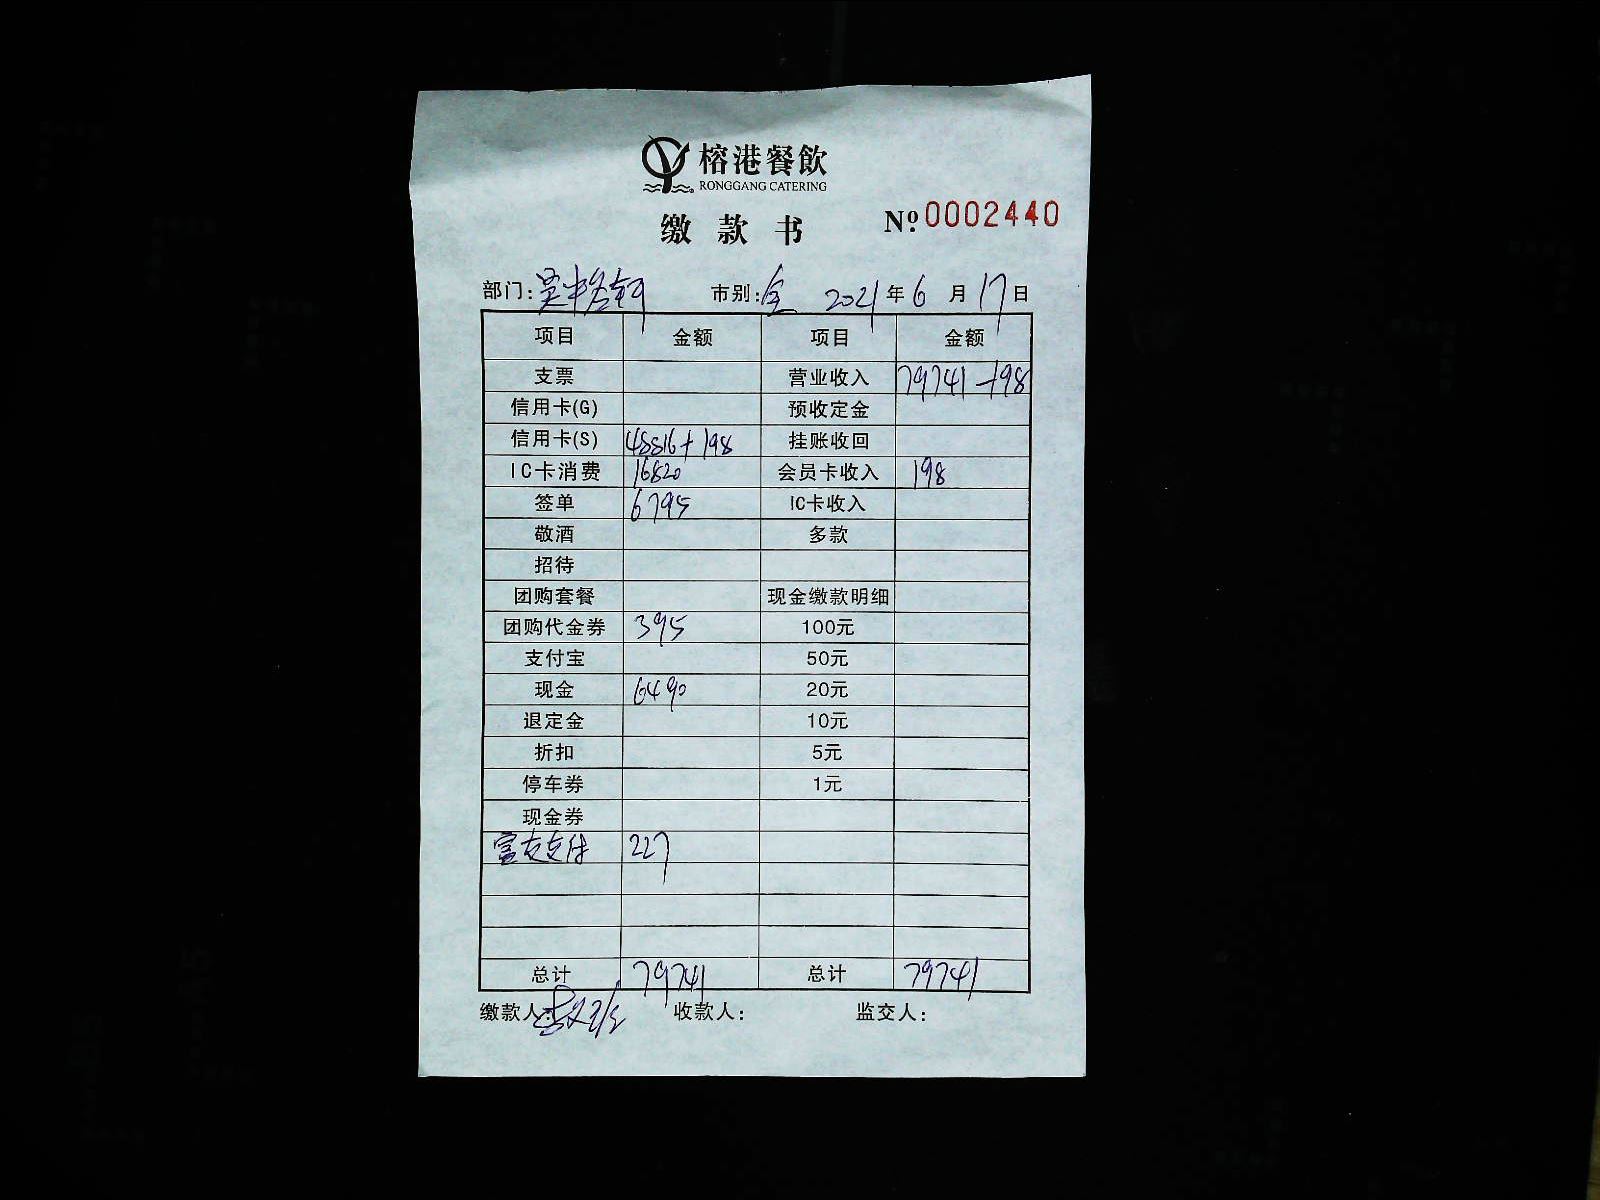 榕港餐飲
RONGGANG CATERING
缴款书 Nº:0002440
部门: 市别:全 2021年6月17日
项目 金额 项目 金额
支票 营业收入 79741-198
信用卡(G) 预收定金
信用卡(S) 48816+198 挂账收回
IC卡消费 16820 会员卡收入 198
签单 6795 IC卡收入
敬酒 多款
招待
团购套餐 现金缴款明细
团购代金券 395 100元
支付宝 50元
现金 6490 20元
退定金 10元
折扣 5元
停车券 1元
现金券
富友支付 227
总计 79741 总计 79741
缴款人: 收款人: 监交人: